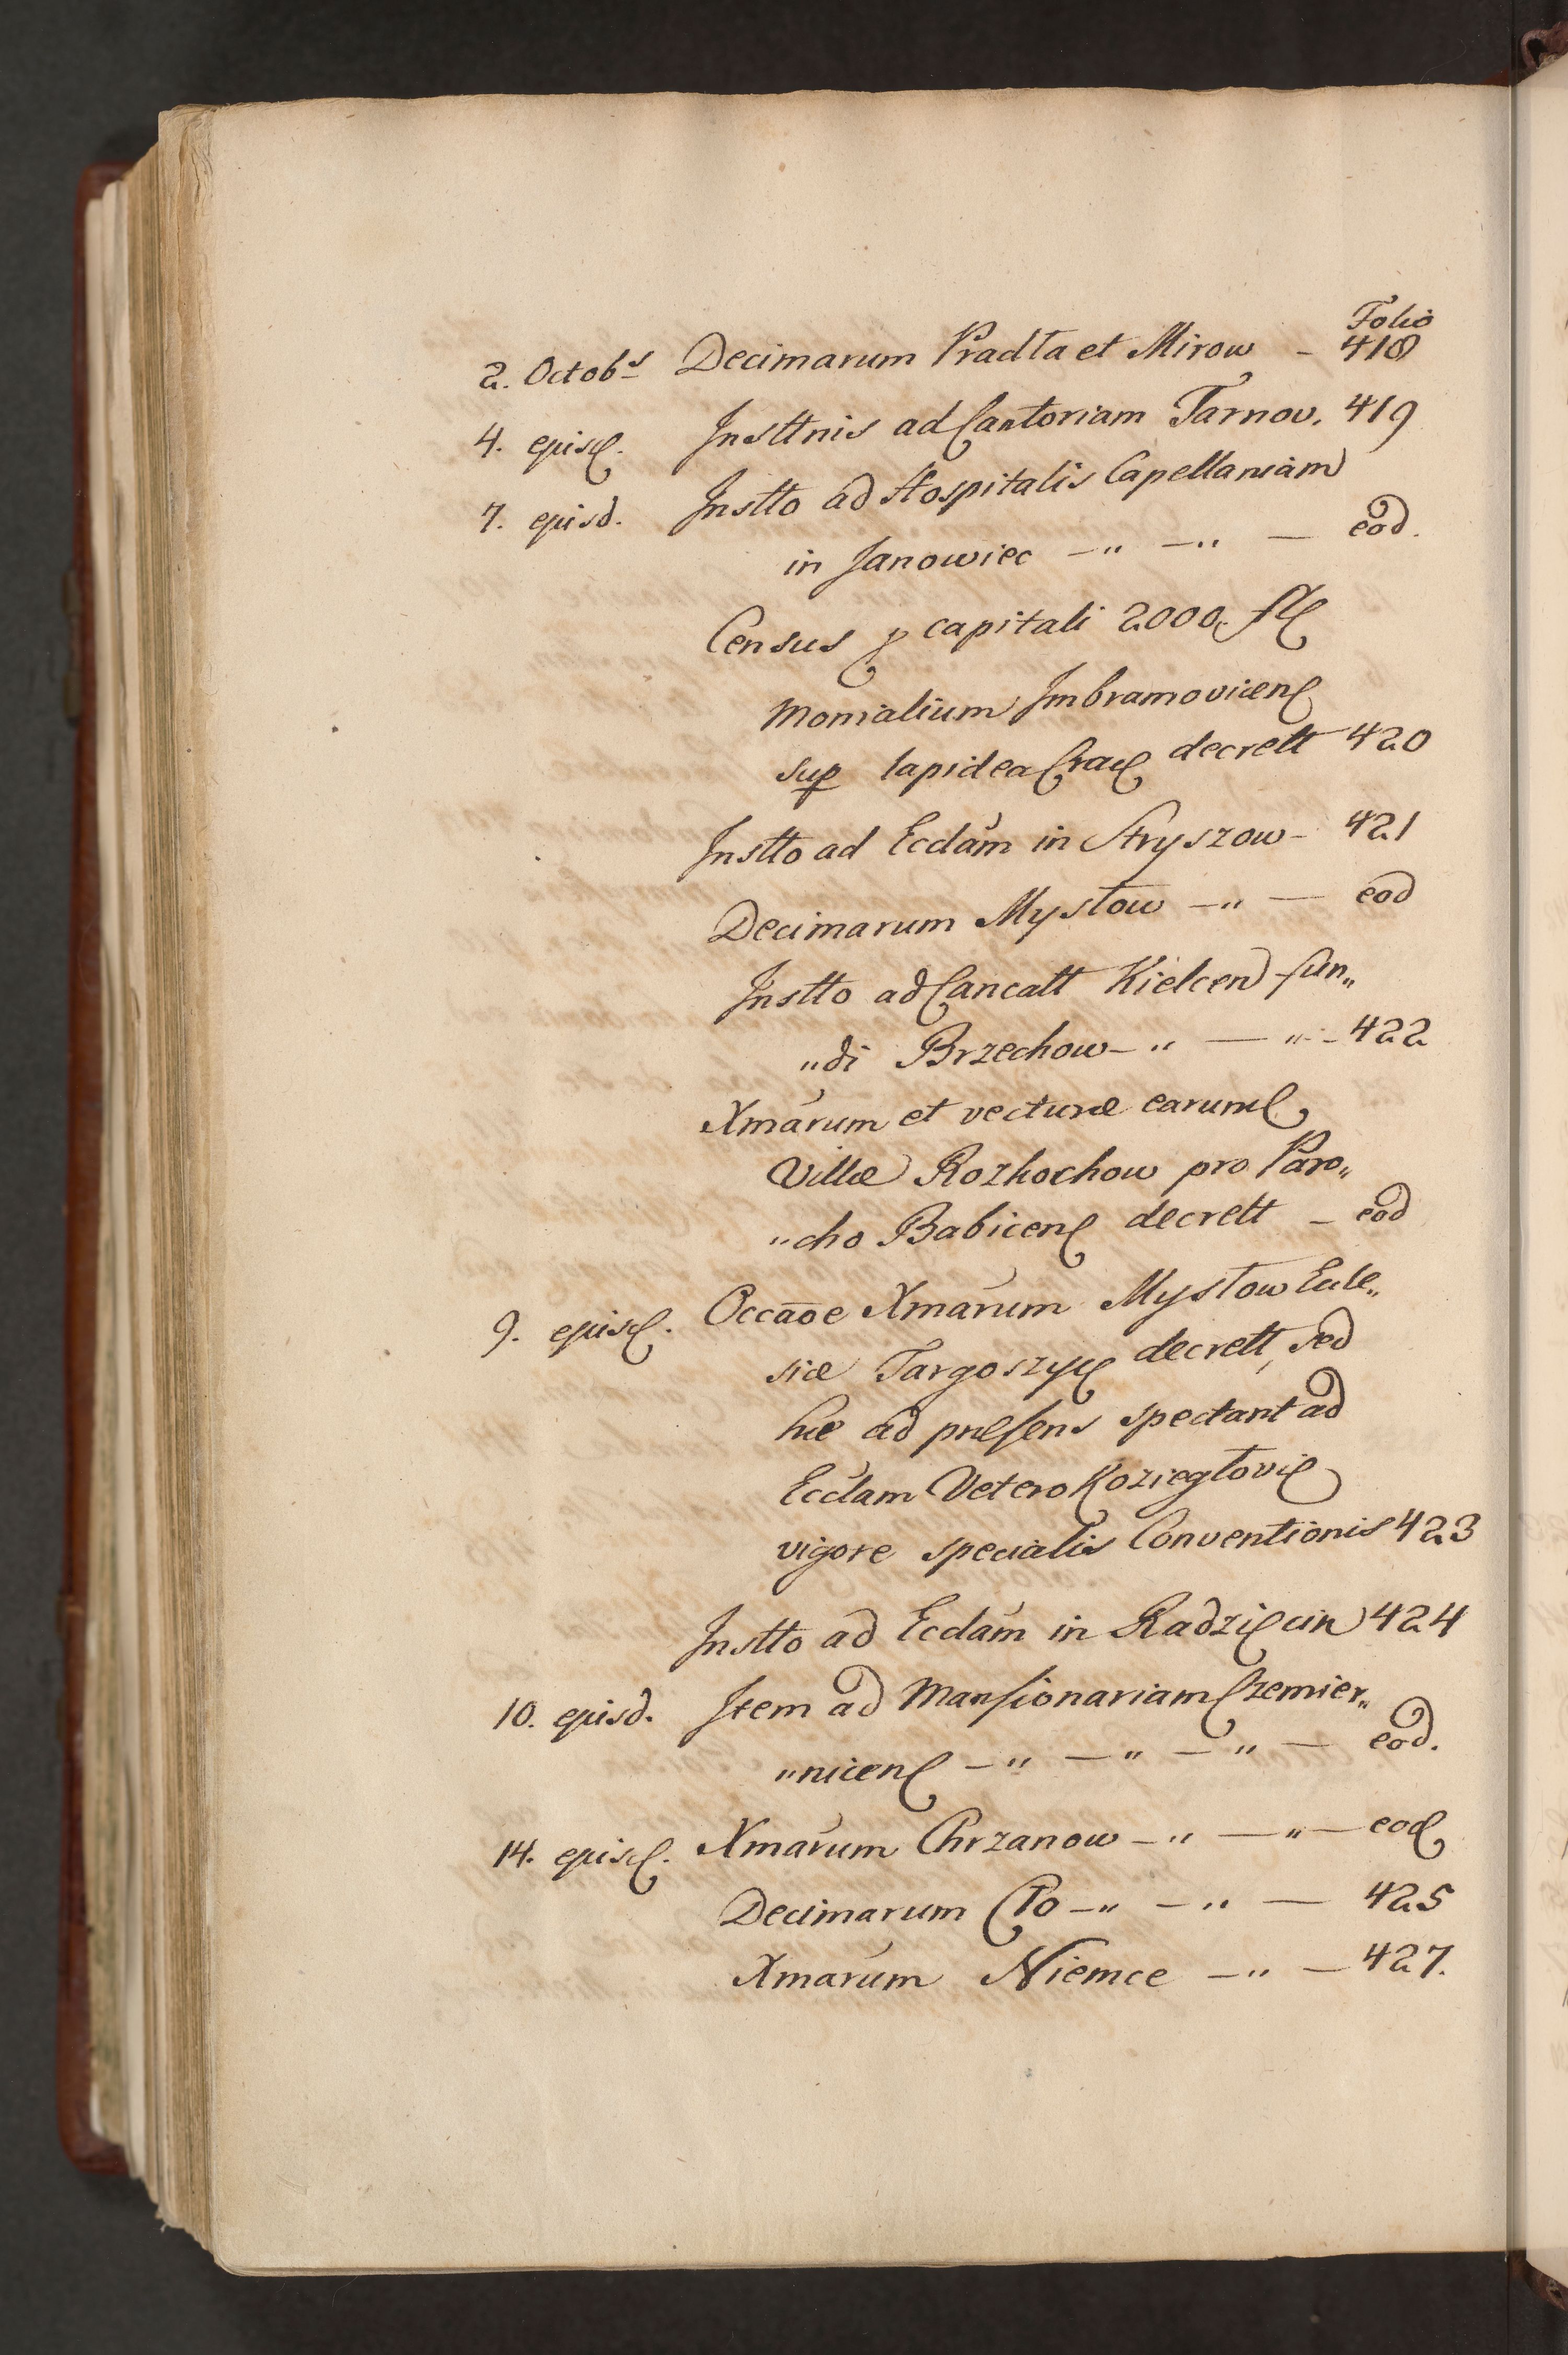 Folio
2. Octobs Decimarum Pradła et Mirow - 418
4. ejusd. Insttnis ad Cantoriam Tarnov. 419
7. ejusd. Instto ad Hospitalis Capellaniam
in Janowiec -„ -„ - eod.
Census p capitali 2000. fl
Monialium Imbramovicen
sup lapidea Crac decrett 420
Instto ad Ecclam in Stryszow - 421
Decimarum Mysłow -„ - eod
Instto ad Cancalt Kielcen fun„
„di Brzechow -„ - „ - 422
Xmarum et vecturæ earum
Villæ Rozkochow pro Paro„
„cho Babicen decrett - eod
9. ejusd. Occaoe Xmarum Mysłow Eccle„
siæ Targoszyc decrett, sed
hæ ad præsens spectant ad
Ecclam Vetero Koziegłovic
vigore specialis Conventionis 423
Instto ad Ecclam in Radzięcin 424
10. ejusd. Item ad Mansionariam Czemier„
„nicen -„ -„ -„ - eod.
14. ejusd. Xmarum Chrzanow -„ -„ - eod
Decimarum Cło -„ -„ - 425
Xmarum Niemce -„ - 427.